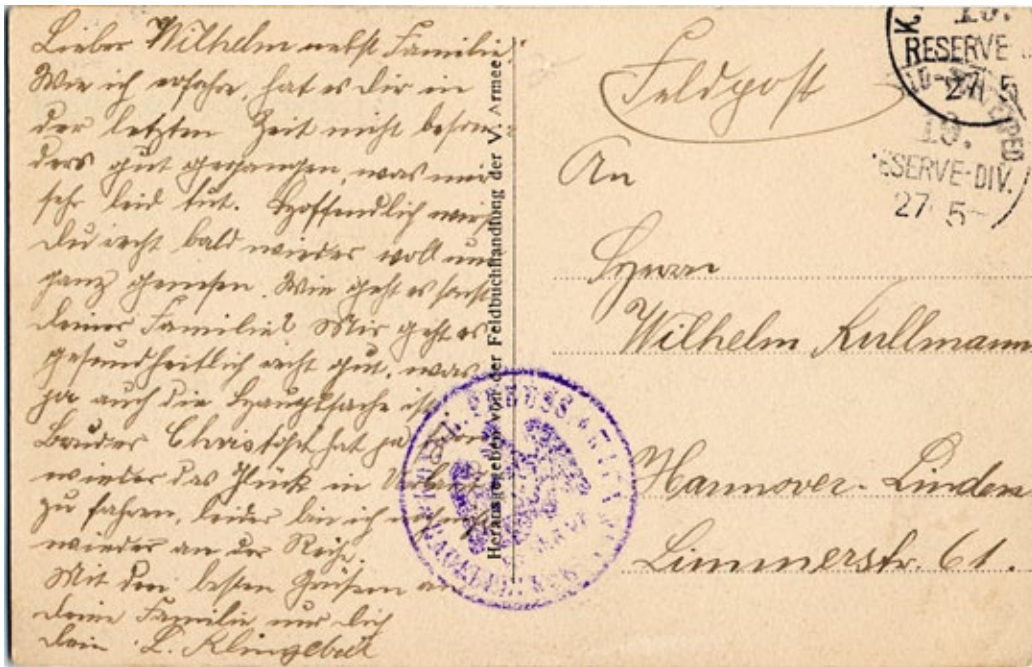 Lieber Wilhelm nebst Familie!
Wie ich erfahre, hat es dir in
der letzten Zeit nicht beson-
ders gut gegangen, was mir
sehr leid tut. Hoffendlich wirst
du recht bald wieder voll und
ganz genesen. Wie geht es sonst
deiner Familie? Mir geht es
gesundheitlich recht gut, was
ja auch die Hauptsache ist.
Bruder Christoph hat ja
wieder das Glück in Urlaub
zu fahren, leider bin ich
wieder an der Reihe.
Mit den besten Grüßen an
deine Familie und dich
dein L. Klingebiel
Herausgegeben von der Feldbuchhandlung der V. Armee
Feldpost
An
Herrn
Wilhelm Kullmann
Hannover-Linden
Limmerstr. 61.
K.
19.
RESERVE-
27 5
19.
RESERVE-DIV.
27 5